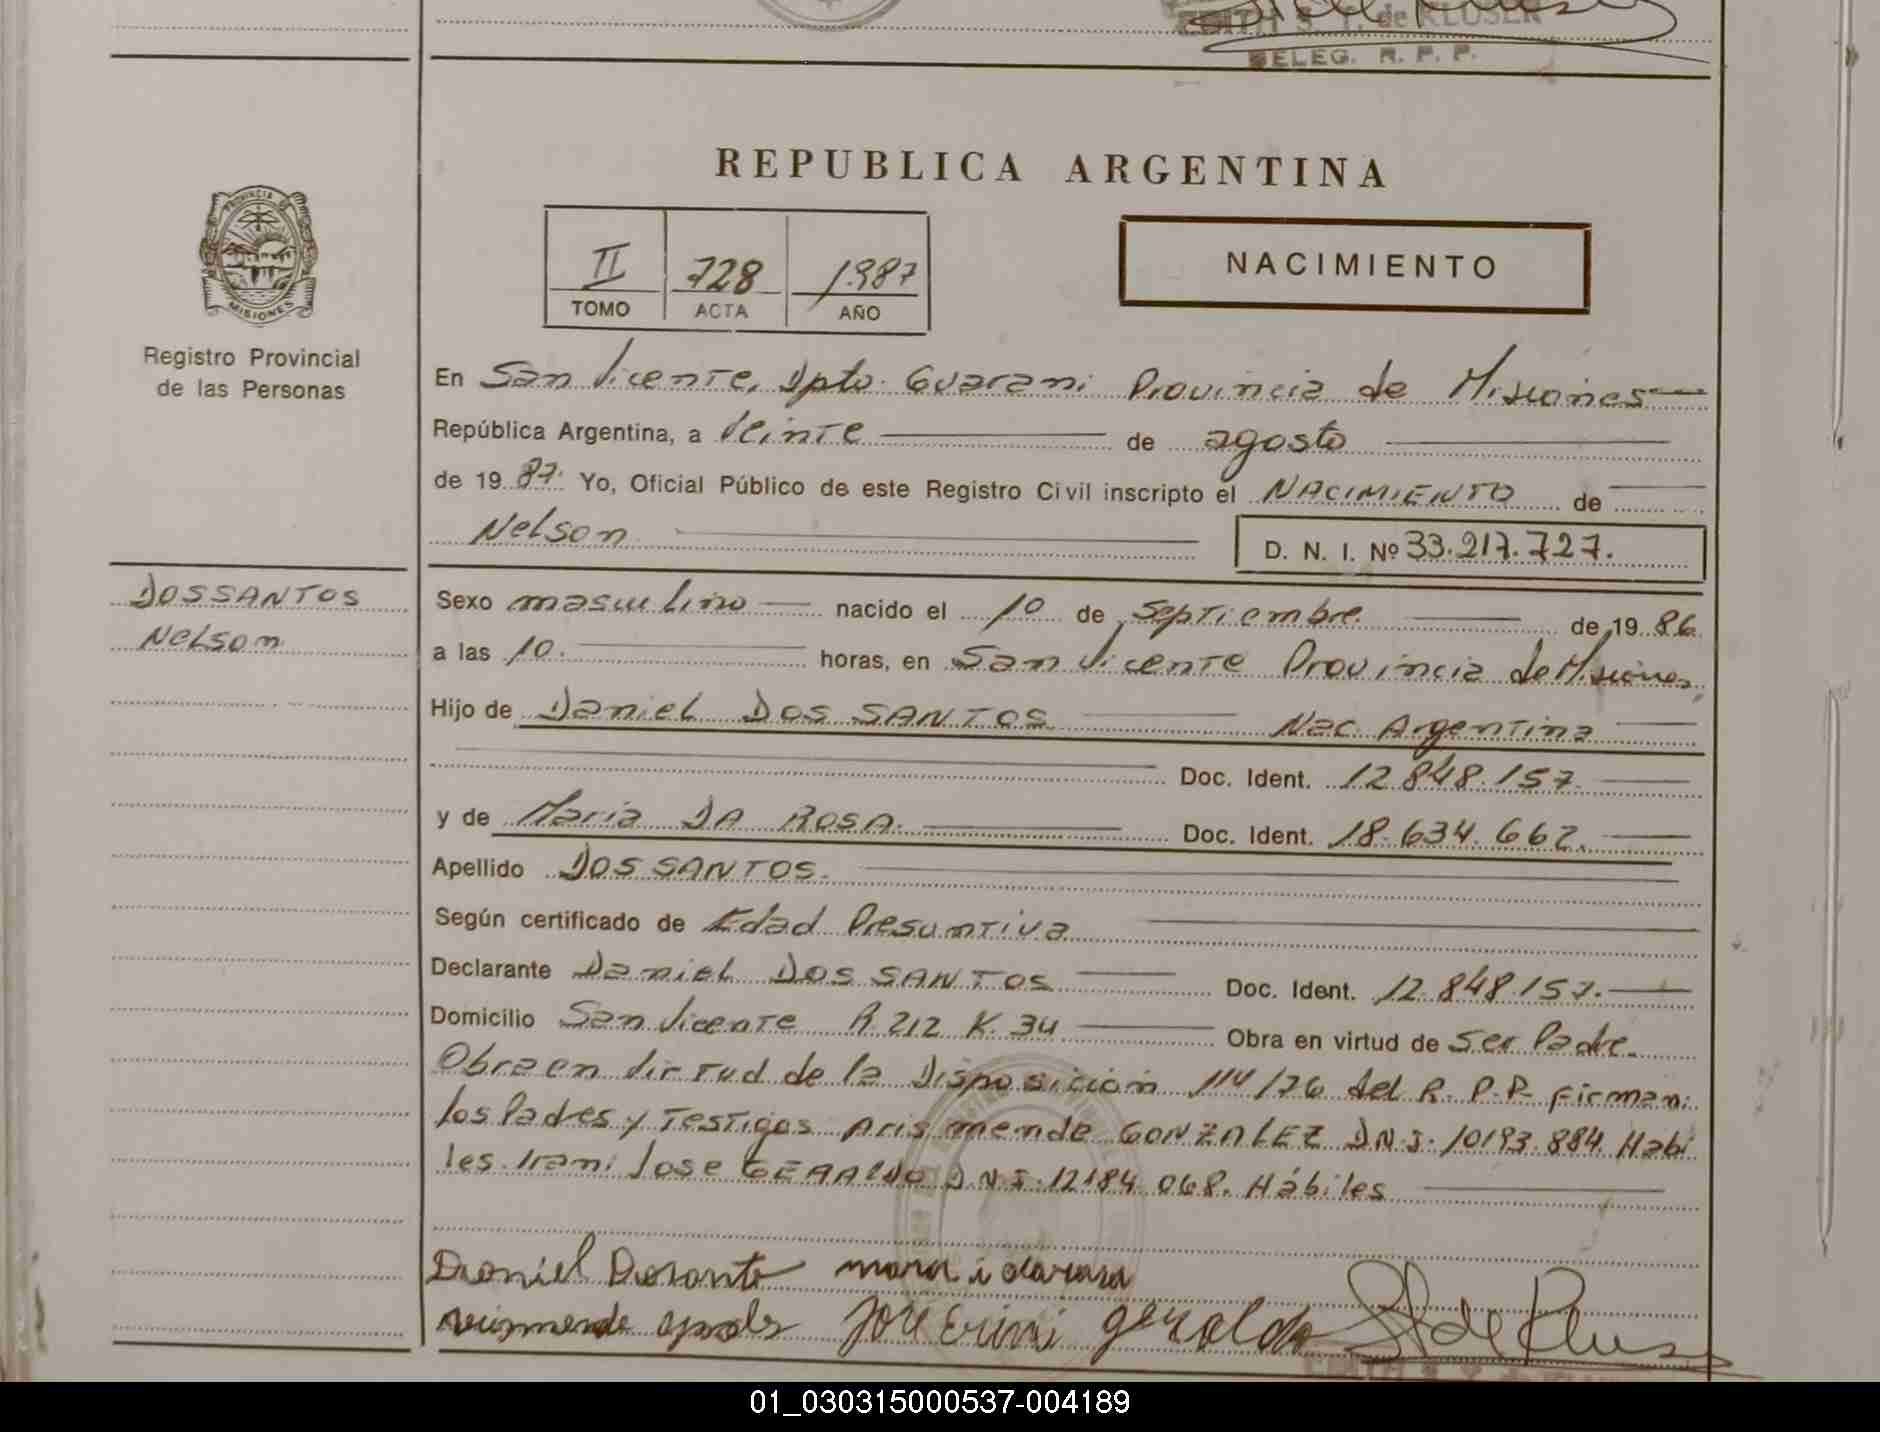 EDITH S. T. de KLUSER
DELEG. R. P. P.
REPUBLICA ARGENTINA
PROVINCIA DE
MISIONES
II 728 1.987
TOMO ACTA AÑO
NACIMIENTO
Registro Provincial
de las Personas
En San Vicente, Dpto. Guarani Provincia de Misiones
República Argentina, a Veinte de agosto
de 19 87. Yo, Oficial Público de este Registro Civil inscripto el NACIMIENTO de
Nelson D. N. I. Nº 33.217.727.
DOSSANTOS
Nelson
Sexo masculino nacido el 10 de Septiembre de 19 86
a las 10. horas, en San Vicente Provincia de Misiones,
Hijo de Daniel DOS SANTOS Nac. Argentina
Doc. Ident. 12.848.157.
y de Maria DA ROSA. Doc. Ident. 18.634.662.
Apellido DOS SANTOS.
Según certificado de Edad Presuntiva
Declarante Daniel DOS SANTOS Doc. Ident. 12.848.157.
Domicilio San Vicente R.212 K.34 Obra en virtud de Ser Padre.
Obra en Virtud de la Disposición 114/76 del R.P.P. firman:
los Padres y Testigos Arismende GONZALEZ D.N.I. 10193.884. Habi
les. Irani Jose GERALDO D.N.I. 12184.068. Hábiles
Daniel Dosanto maria darosa
José Erini geraldo